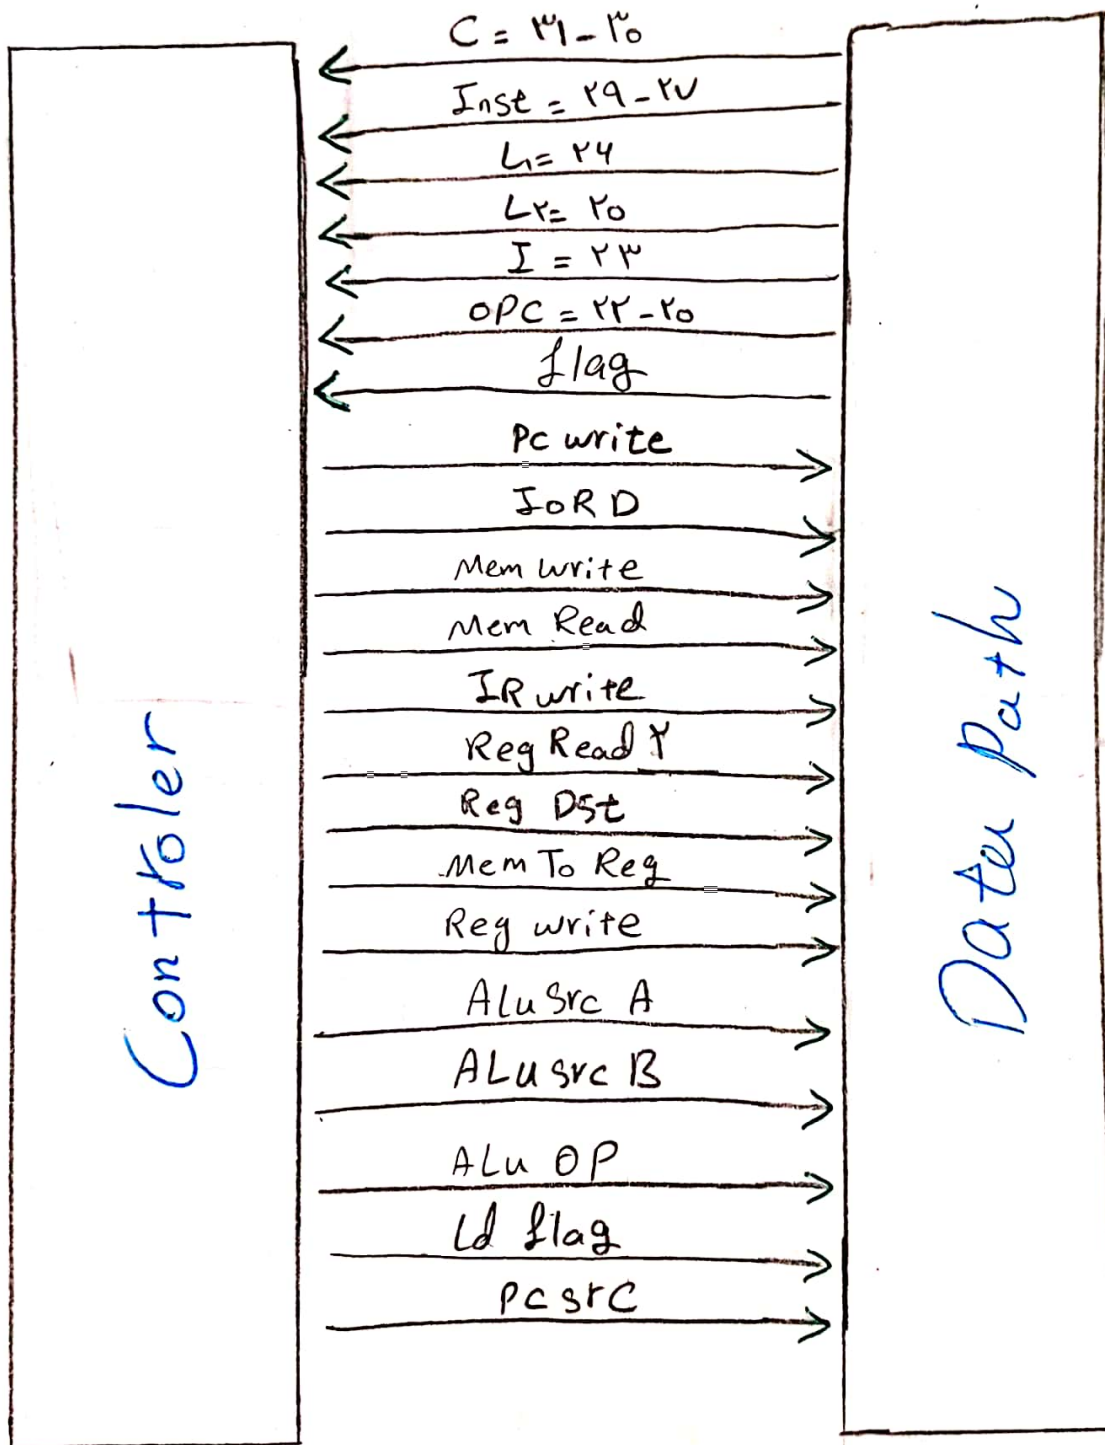 C = ۳۱-۳۰
Inst = ۲۹-۲۷
L۱= ۲۶
L۲= ۲۰
I = ۲۳
OPC = ۲۲-۲۰
flag
Pc write
IoR D
Mem write
Mem Read
IR write
Reg Read ۲
Reg Dst
Mem To Reg
Reg write
ALu Src A
ALu src B
ALu OP
Ld flag
Pc srC
Controler
Data Path